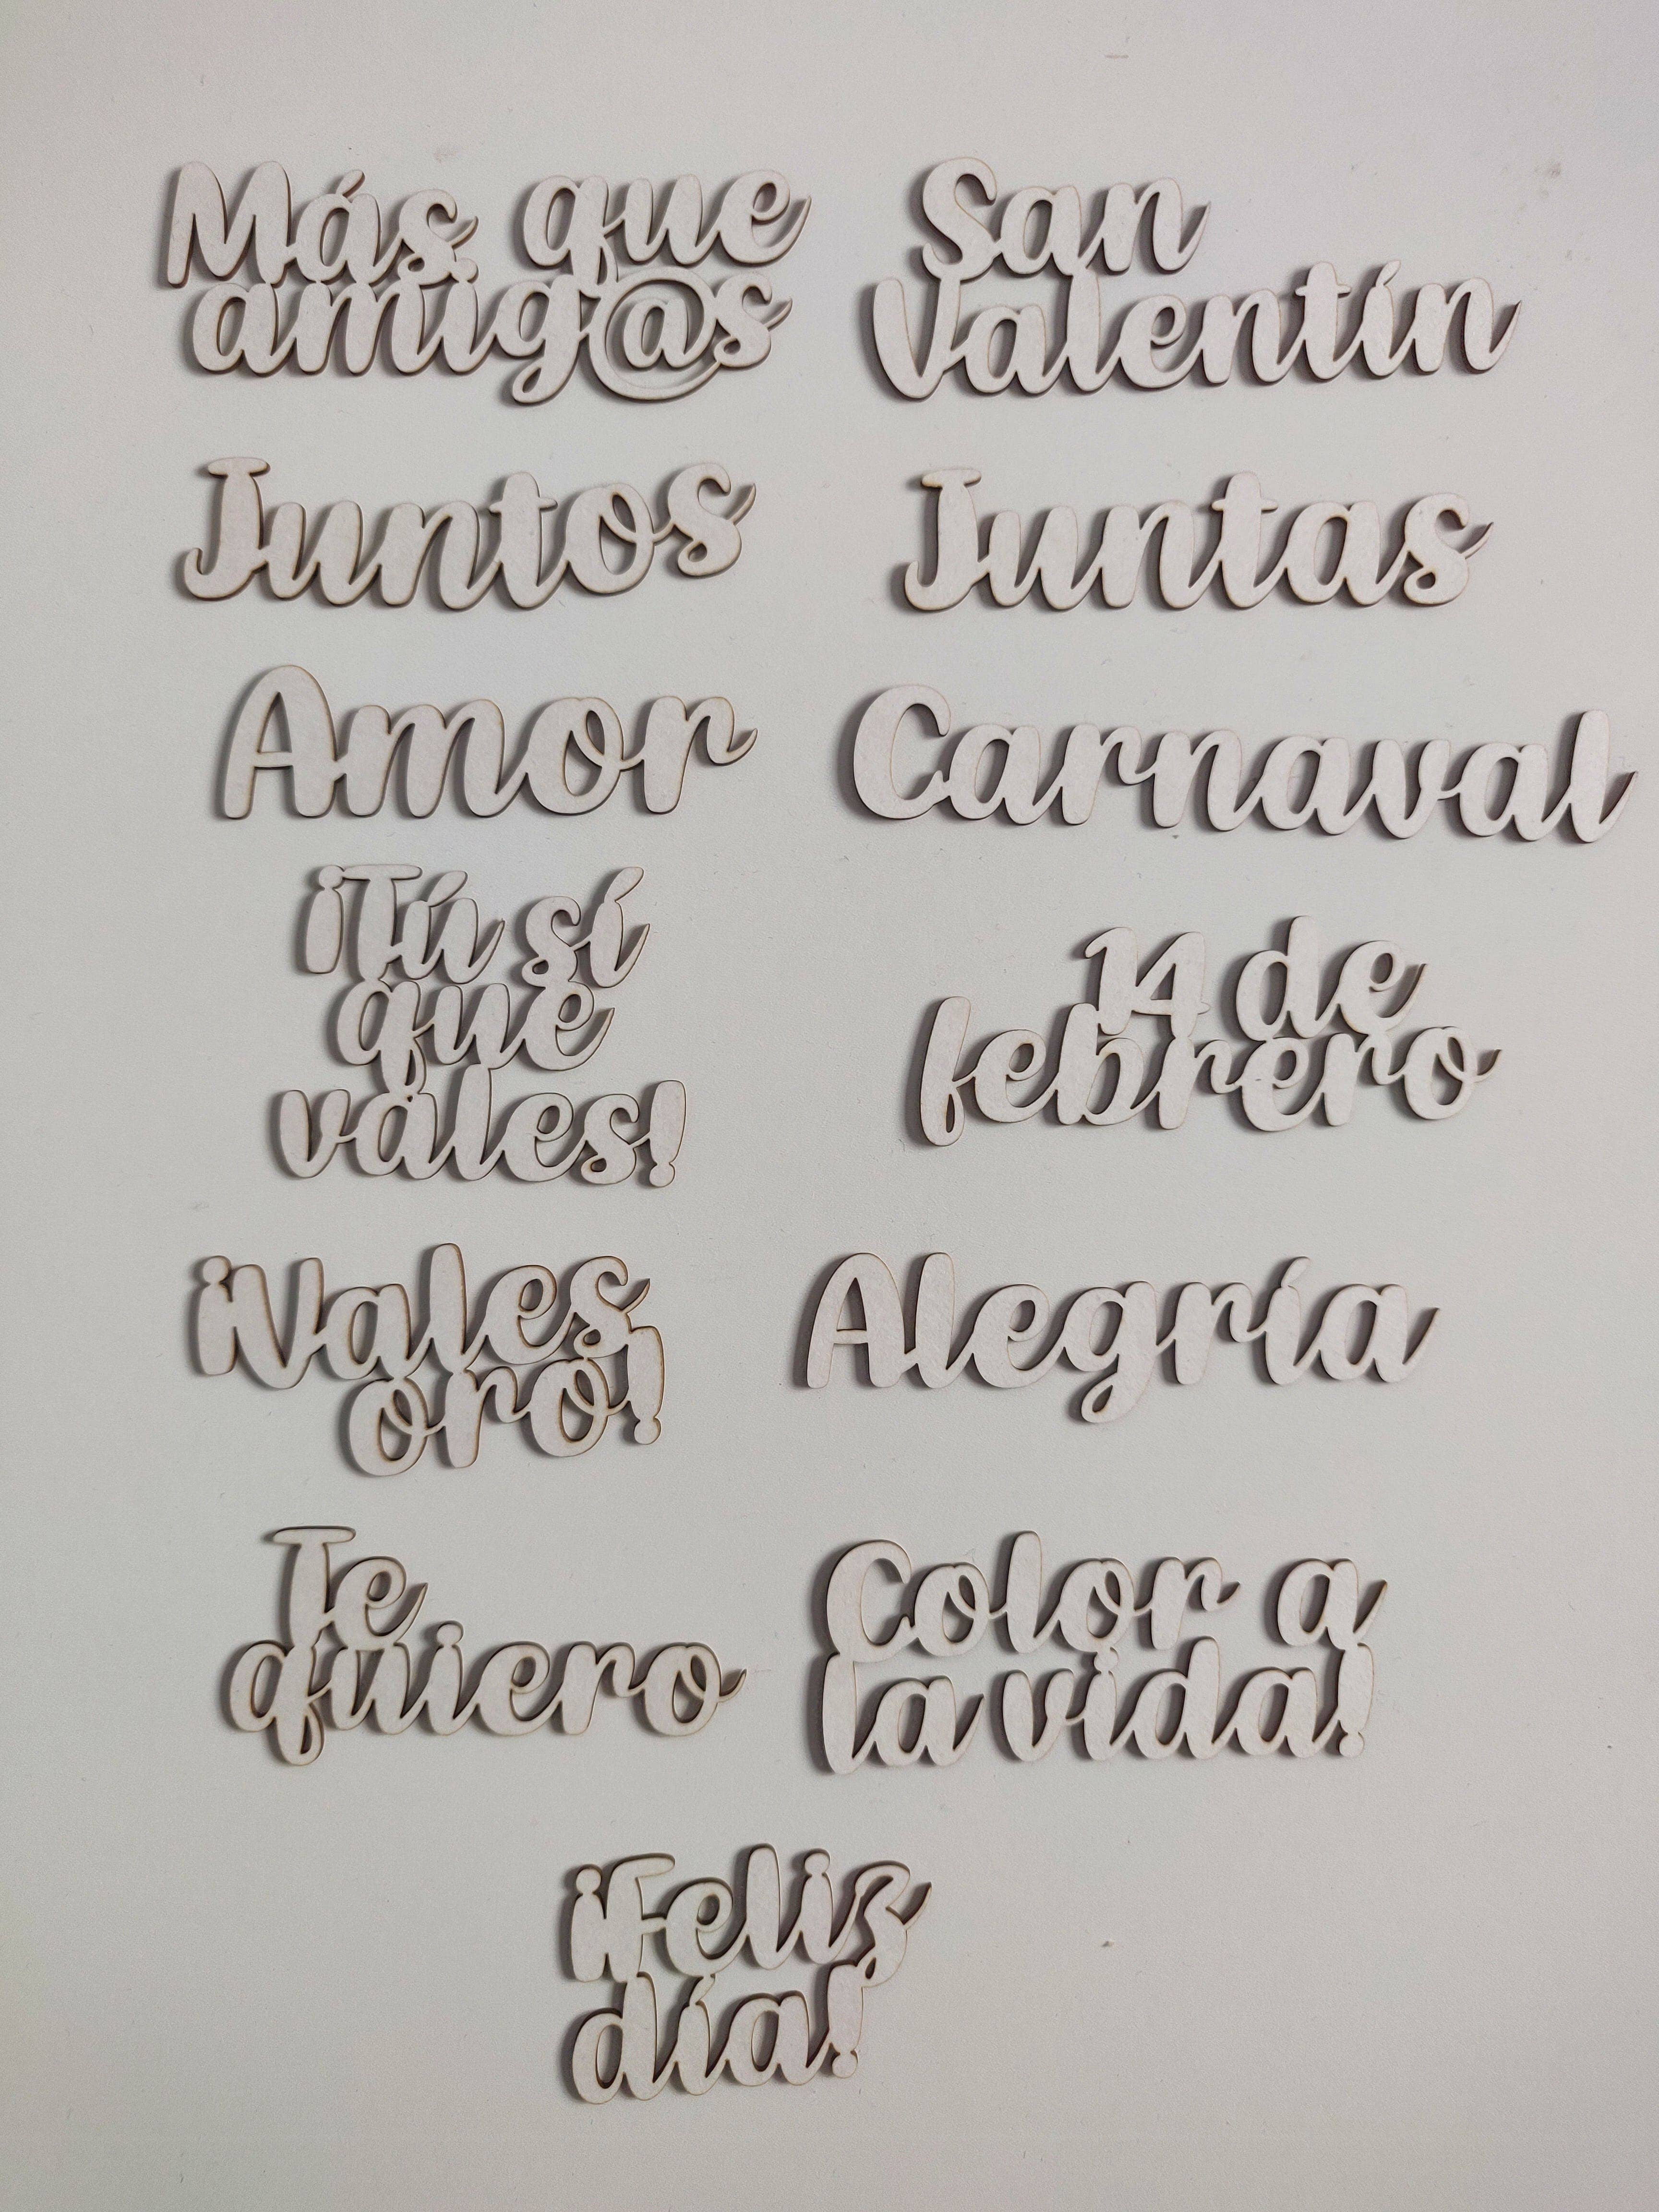 Más que
amig@s
San
Valentín
Juntos
Juntas
Amor
Carnaval
¡Tú sí
que
vales!
14 de
febrero
¡Vales
oro!
Alegría
Te
quiero
Color a
la vida!
¡Feliz
día!